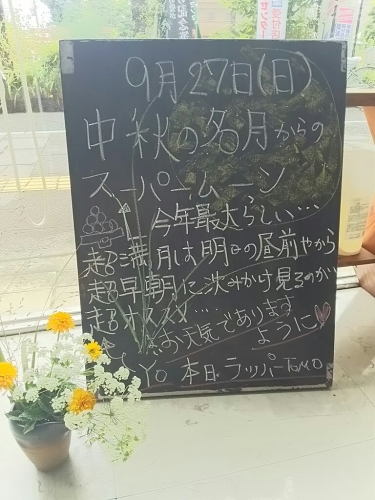 9月27日(日)
中秋の名月からの
スーパームーン
今年最大らしい…
超満月は明日の昼前やから
超早朝に沈みかけ見るのがい
超オススメ…
お天気であります
ように♡
Yo 本日ラッパーTOMO